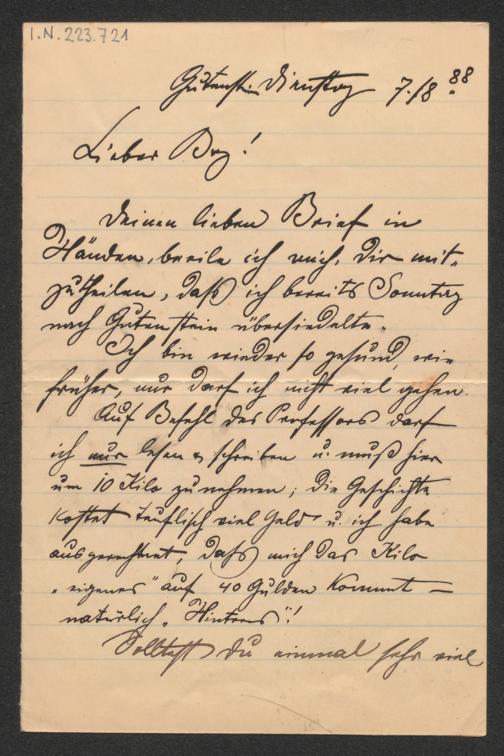 I.N. 223.721
Gutenstein Dienstag 7./8 88
Lieber Boy!
Deinen lieben Brief in
Händen, beeile ich mich, Dir mit-
zutheilen, daß ich bereits Sonntag
nach Gutenstein übersiedelte.
Ich bin wieder so gesund, wie
früher, nur darf ich nicht viel gehen.
Auf Befehl des Professors darf
ich nur lesen & schreiben u. muß hier
um 10 Kilo zunehmen; die Geschichte
kostet teuflisch viel Geld u. ich habe
ausgerechnet, daß mich das Kilo
„eigenes" auf 40 Gulden kommt –
natürlich „Hinteres"!
Solltest Du einmal sehr viel